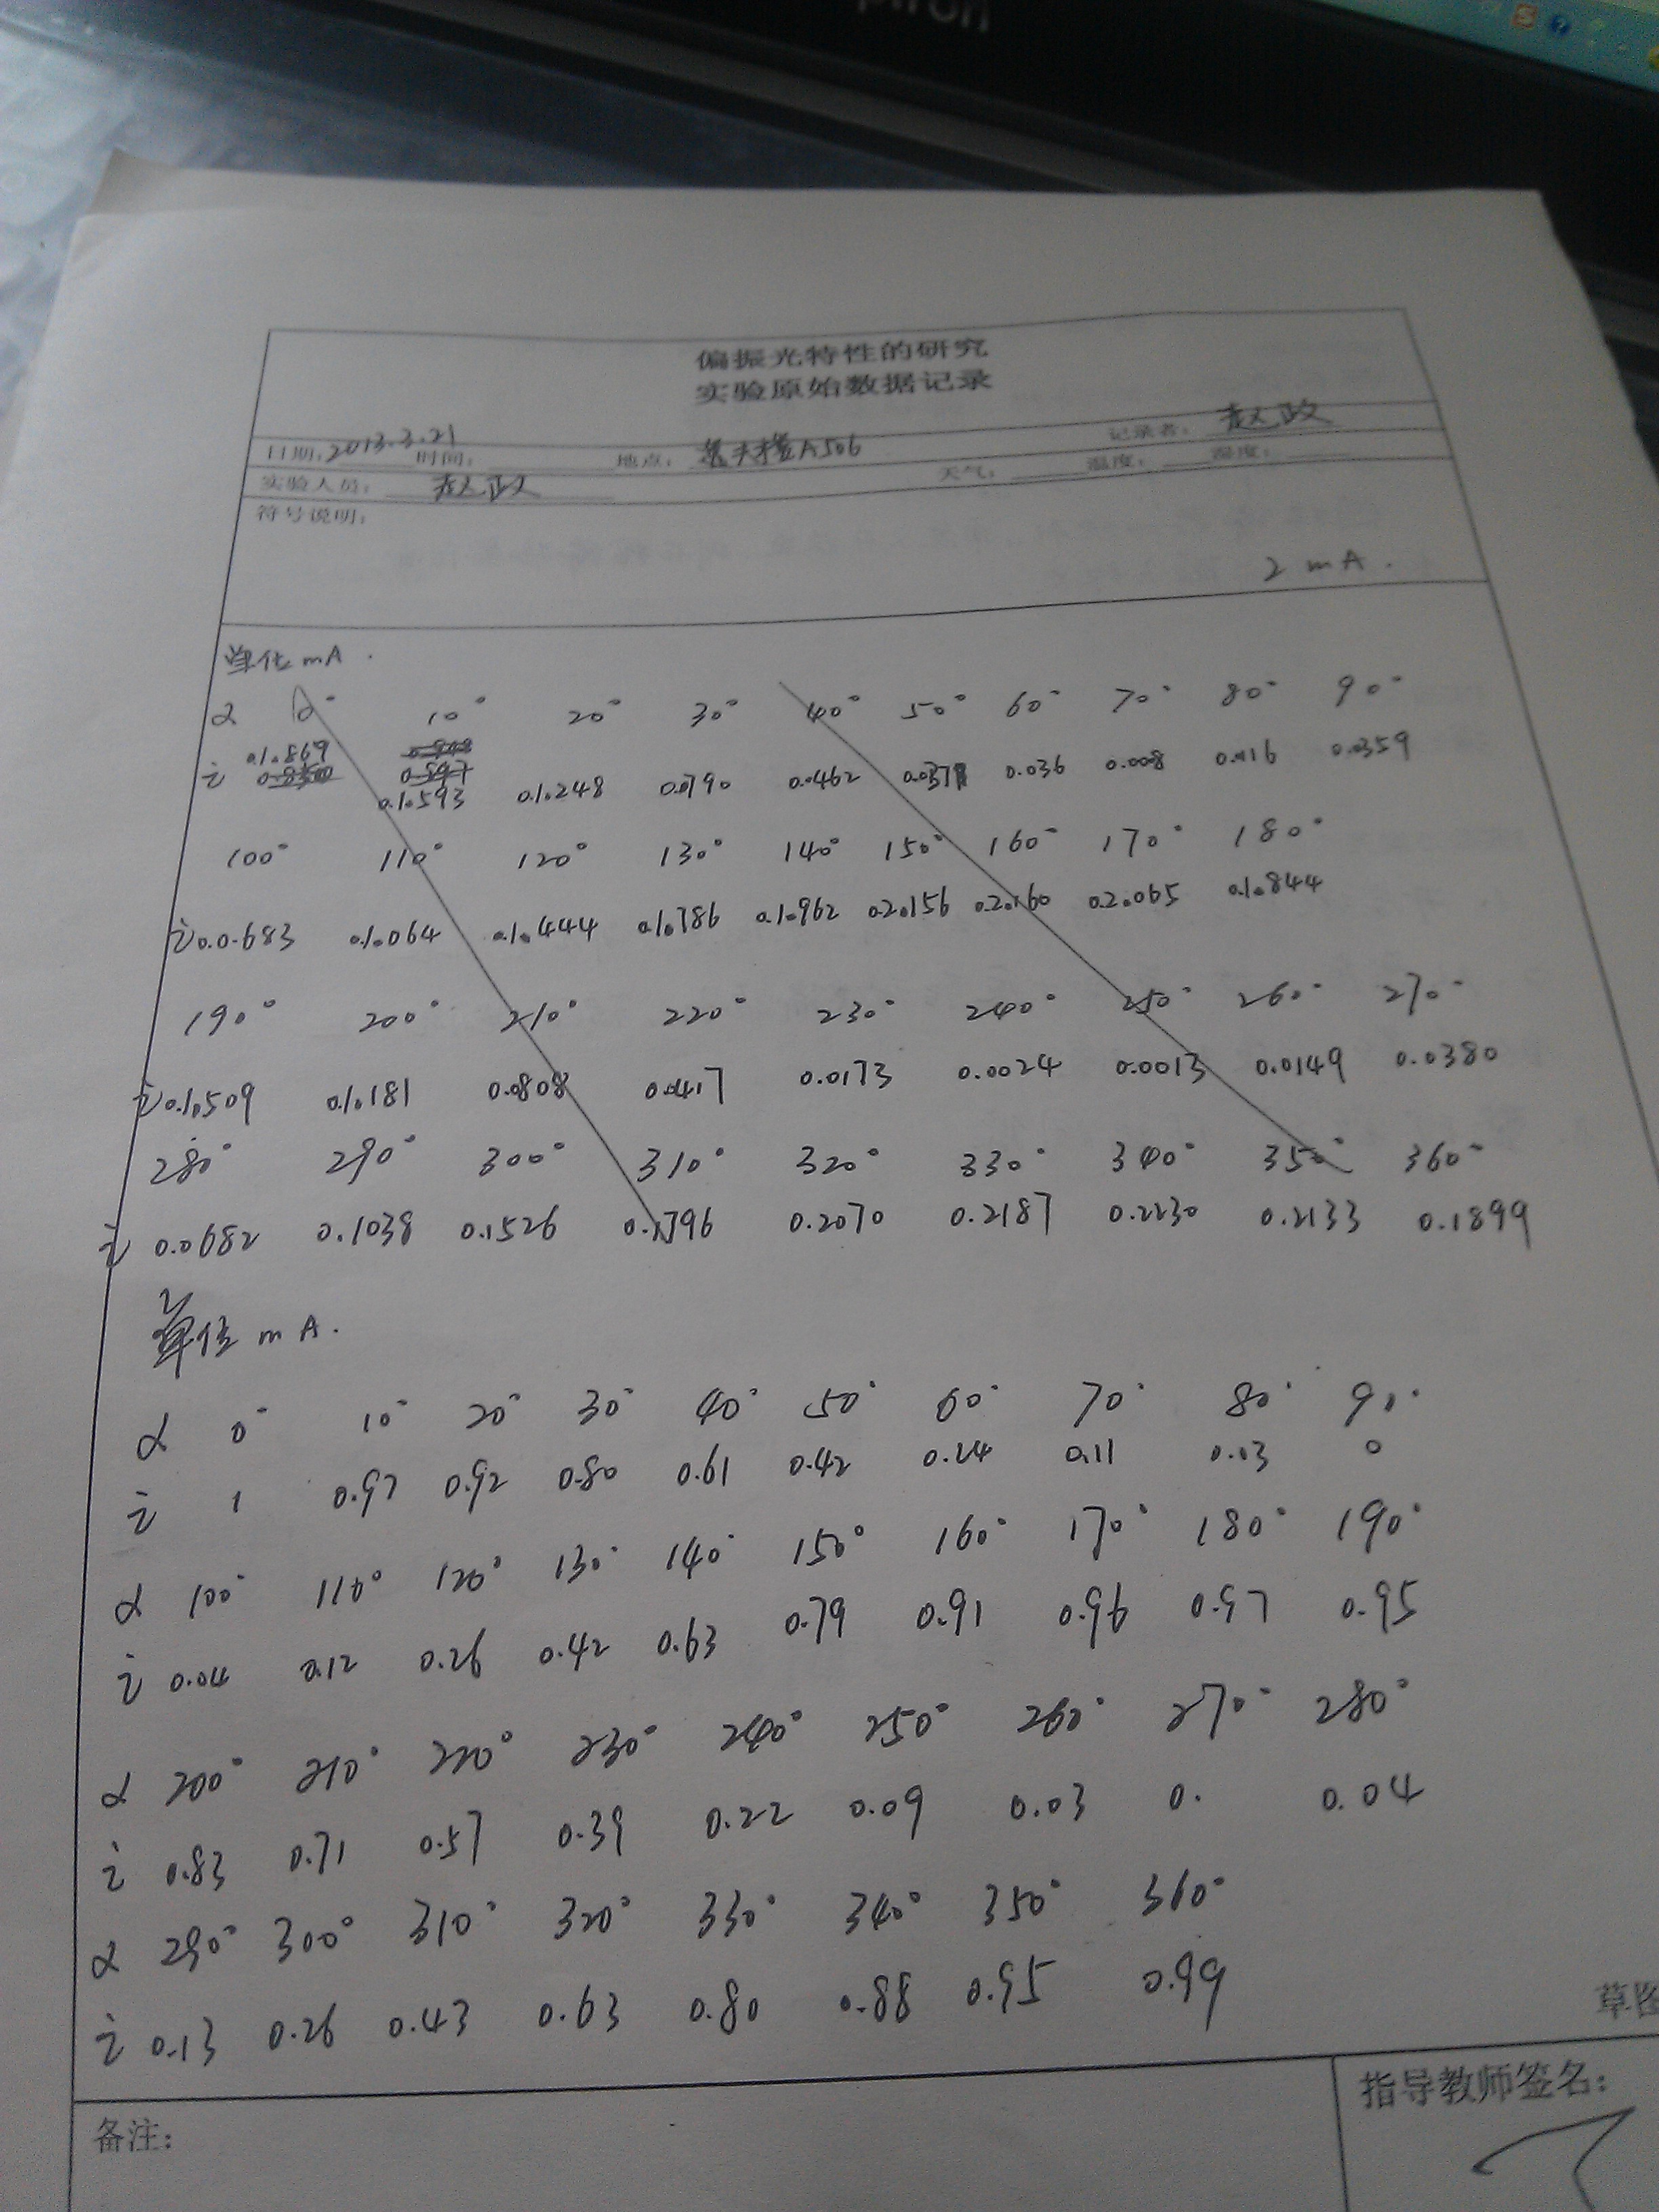 偏振光特性的研究
实验原始数据记录
日期: 2013.3.21 时间: 地点: 逸夫楼A506 记录者: 赵政
实验人员: 赵政 天气: 温度: 湿度:
符号说明:
2 mA.
单位 mA.
α 0° 10° 20° 30° 40° 50° 60° 70° 80° 90°
i 0.1.869 0.1.593 0.1.248 0.0790 0.0462 0.036 0.008 0.016 0.0359
100° 110° 120° 130° 140° 150° 160° 170° 180°
i 0.0.683 0.1.064 0.1.444 0.1.786 0.1.962 0.2.156 0.2.160 0.2.065 0.1.844
190° 200° 210° 220° 230° 240° 250° 260° 270°
i 0.1.509 0.1.181 0.0808 0.0417 0.0173 0.0024 0.0013 0.0149 0.0380
280° 290° 300° 310° 320° 330° 340° 350° 360°
i 0.0682 0.1038 0.1526 0.1796 0.2070 0.2187 0.2230 0.2133 0.1899
单位 mA.
α 0° 10° 20° 30° 40° 50° 60° 70° 80° 90°
i 1 0.97 0.92 0.80 0.61 0.42 0.24 0.11 0.03 0
α 100° 110° 120° 130° 140° 150° 160° 170° 180° 190°
i 0.04 0.12 0.26 0.42 0.63 0.79 0.91 0.96 0.97 0.95
α 200° 210° 220° 230° 240° 250° 260° 270° 280°
i 0.83 0.71 0.57 0.39 0.22 0.09 0.03 0. 0.04
α 290° 300° 310° 320° 330° 340° 350° 360°
i 0.13 0.26 0.43 0.63 0.80 0.88 0.95 0.99
草图
备注:
指导教师签名: